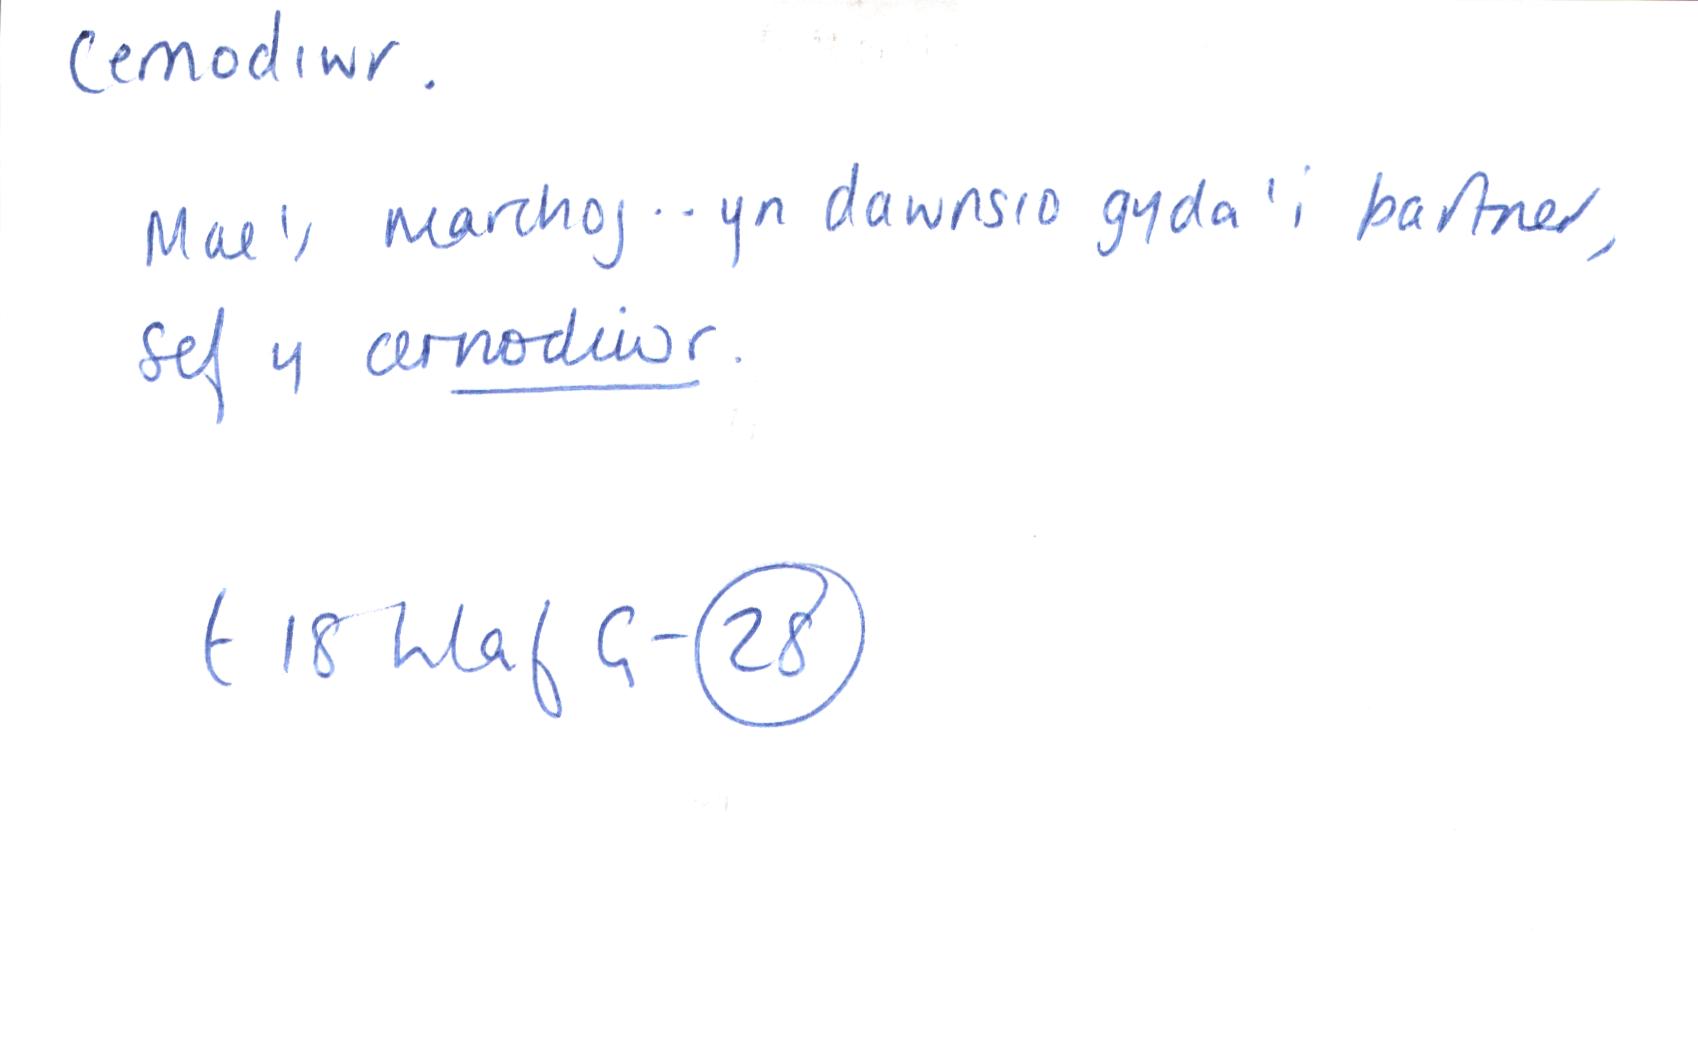 Cernodiwr.
Mae'r marchog .. yn dawnsio gyda'i bartner,
sef y cernodiwr.
t 18 hlaf G-28